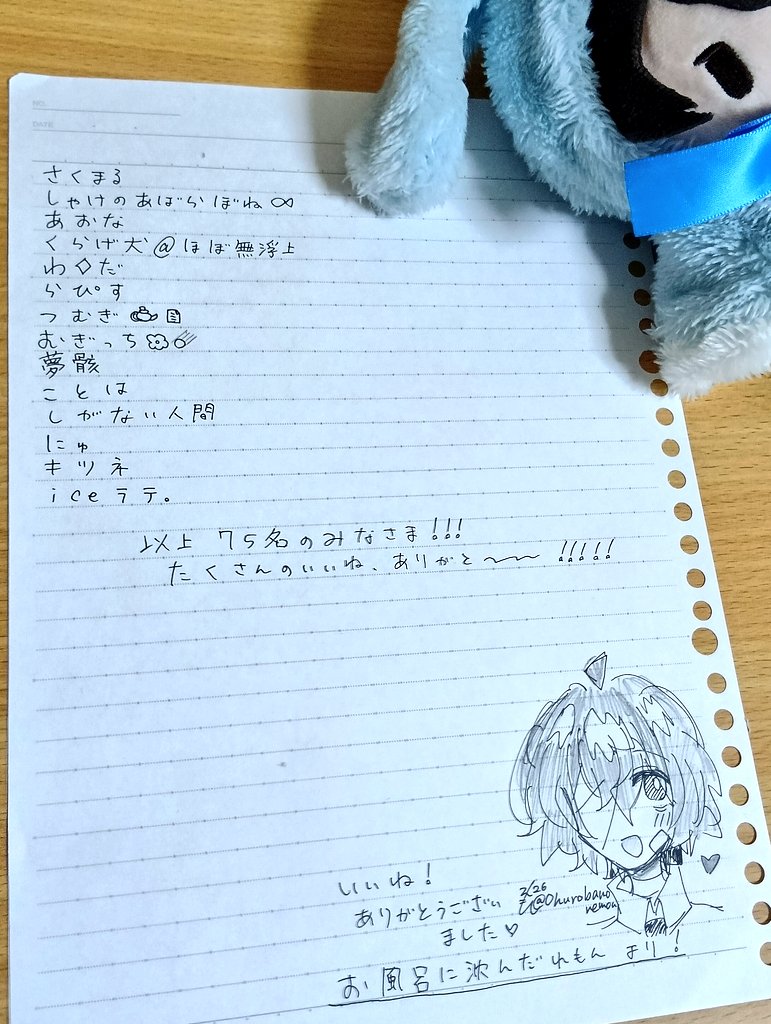 NO.
DATE
さくまる
しゃけのあばらぼね∞
あおな
くらげ犬@ほぼ無浮上
わ◇だ
らぴす
つむぎ🫖📄
むぎっち🌼☄
夢骸
ことは
しがない人間
にゅ
キツネ
iceラテ。
以上 75名のみなさま!!!
たくさんのいいね、ありがと〜〜 !!!!!
いいね!
ありがとうござい
ました♡
2/26
@Ohurobano
remon
お風呂に沈んだれもん より!